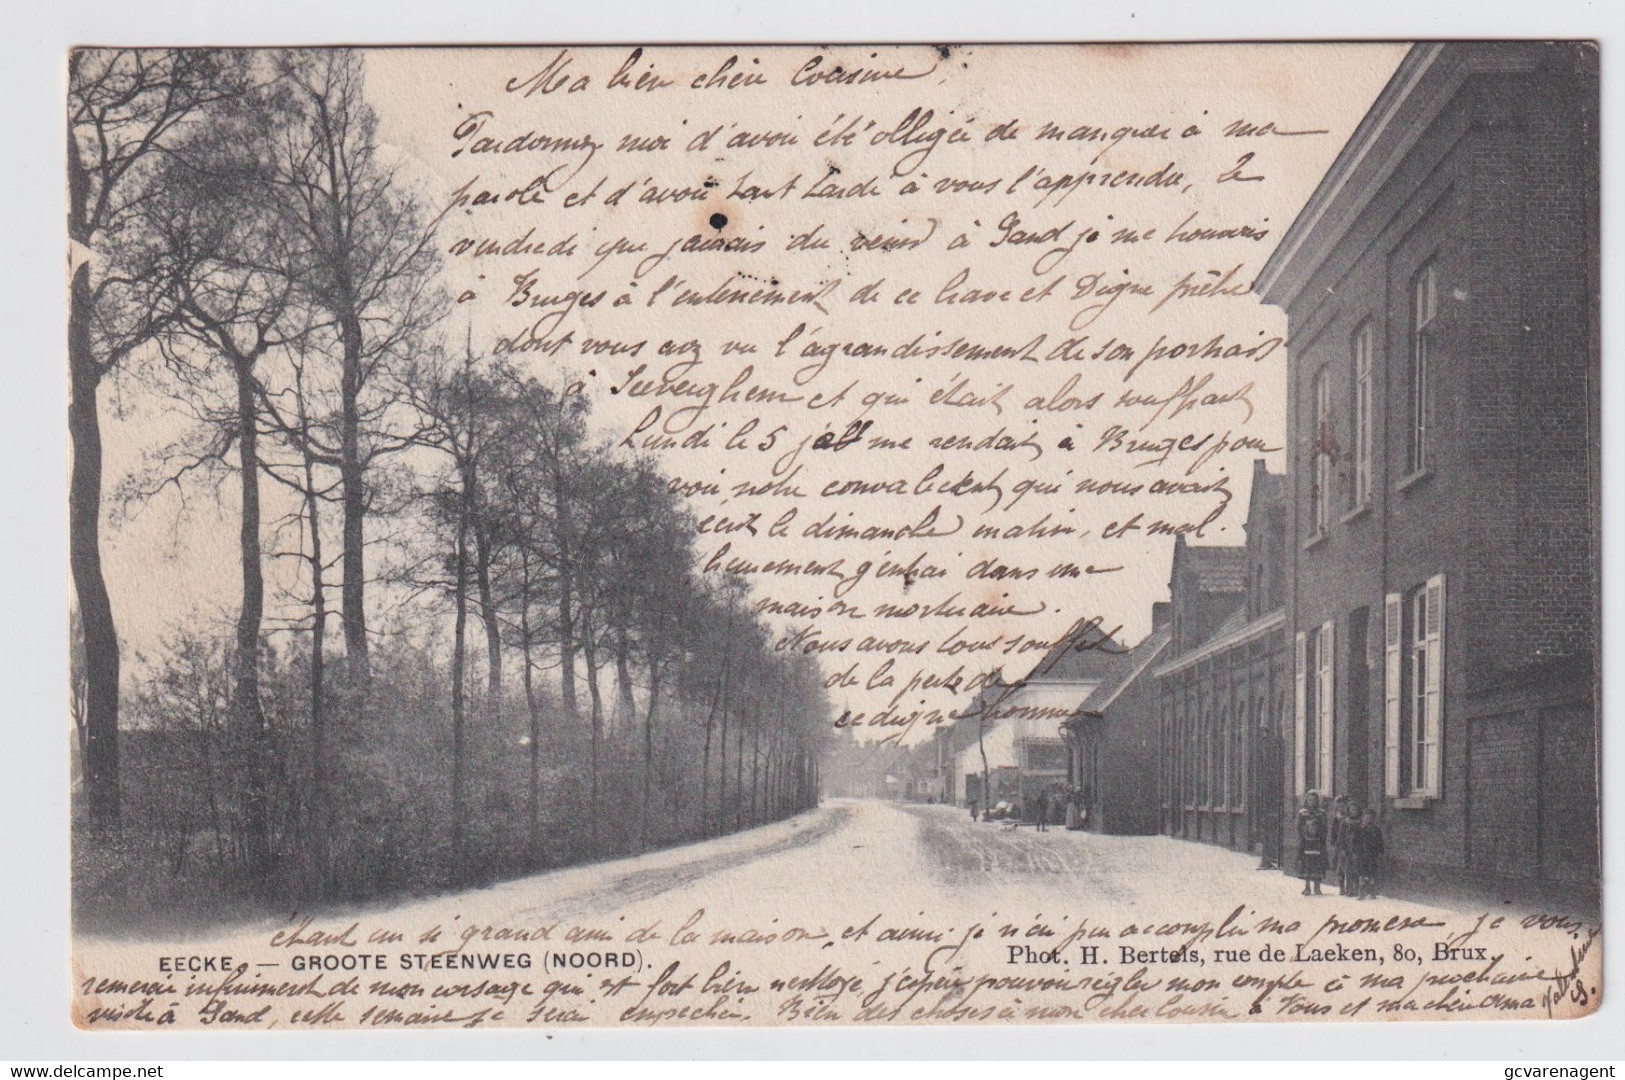 Ma bien chère Cousine,
Pardonnez moi d'avoir été obligée de manquer à ma
parole et d'avoir tant tardé à vous l'apprendre, le
vendredi que j'aurais du venir à Gand je me trouvais
à Bruges à l'enterrement de ce brave et Digne prêtre
dont vous avez vu l'agrandissement de son portrait
à Seeverghem et qui était alors souffrant
Lundi le 5 me rendait à Bruges pour
voir notre convalescent qui nous avait
écrit le dimanche matin, et mal.
heureusement j'entrai dans une
maison mortuaire.
Nous avons tous souffert
de la perte de
ce digne homme
étant un si grand ami de la maison, et ainsi je n'ai pu accomplir ma promesse, je vous
EECKE — GROOTE STEENWEG (NOORD).
Phot. H. Bertels, rue de Laeken, 80, Brux.
remercie infiniment de mon corsage qui est fort bien nettoyé, j'espère pouvoir régler mon compte à ma prochaine
visite à Gand, cette semaine je serai empechée. Bien des choses à mon cher Cousin à Vous et ma chère
S.
gcvarenagent
delcampe.net